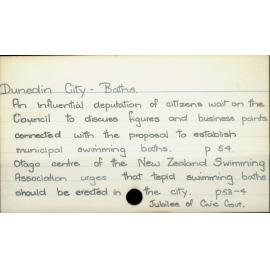 Dunedin City - Baths.
An influential deputation of citizens wait on the
Council to discuss figures and business points
connected with the proposal to establish
municipal swimming baths. p 54.
Otago centre of the New Zealand Swimming
Association urges that tepid swimming baths
should be erected in the city. p53-4
Jubilee of Civic Govt.